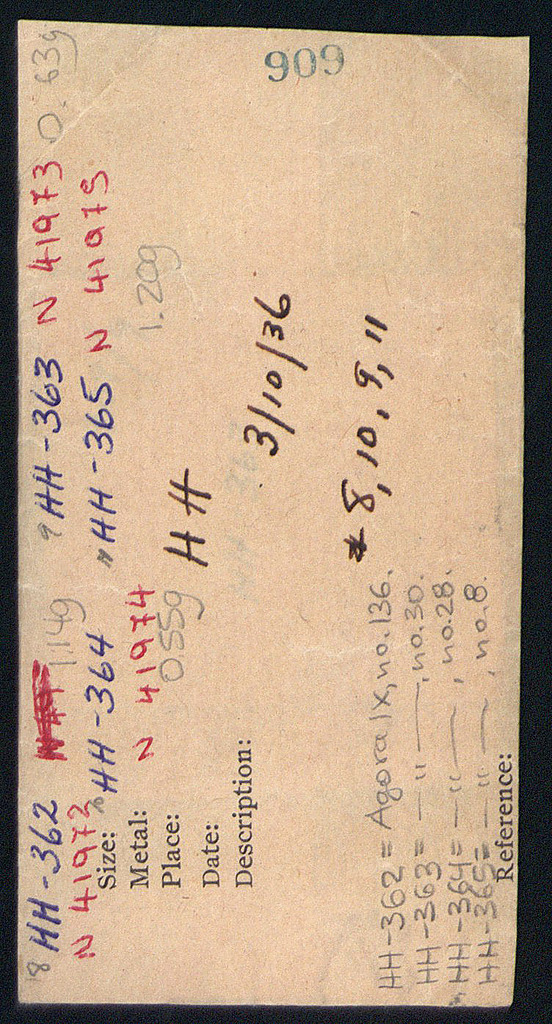 909
8 HH-362 1.14g 9 HH-363 N 41973 0.63g
N 41972 10 HH-364 11 HH-365 N 41975
Size:
Metal: N 41974 1.20g
Place: 0.55g HH
Date:
Description: 3/10/36
* 8, 10, 9, 11
HH-362 = Agora IX, no. 136.
HH-363 = — " —, no. 30.
HH-364 = — " —, no. 28.
HH-365 = — " —, no. 8.
Reference: